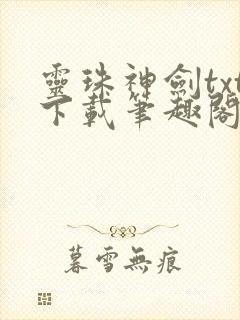 靈珠神劍txt
下載筆趣閣
暮雪無痕